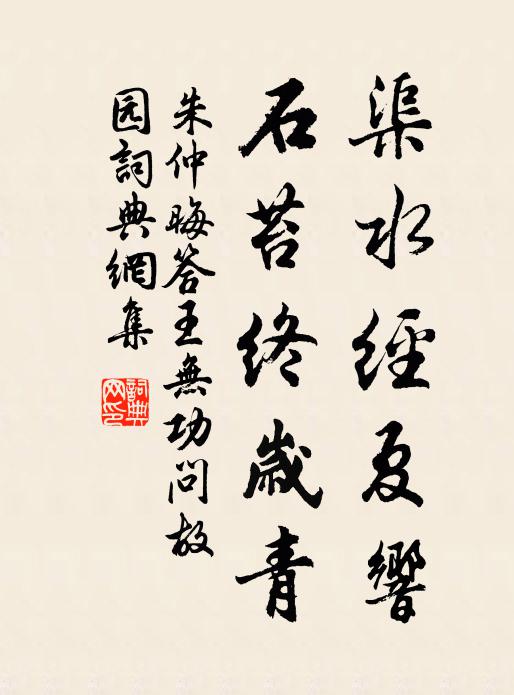 渠水經夏響
石苔終歲青
朱仲晦答王無功問故
园詞典網集
詞典
网印